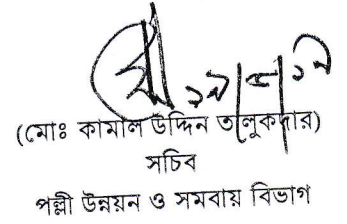 (মোঃ কামাল উদ্দিন তালুকদার)
সচিব
পল্লী উন্নয়ন ও সমবায় বিভাগ